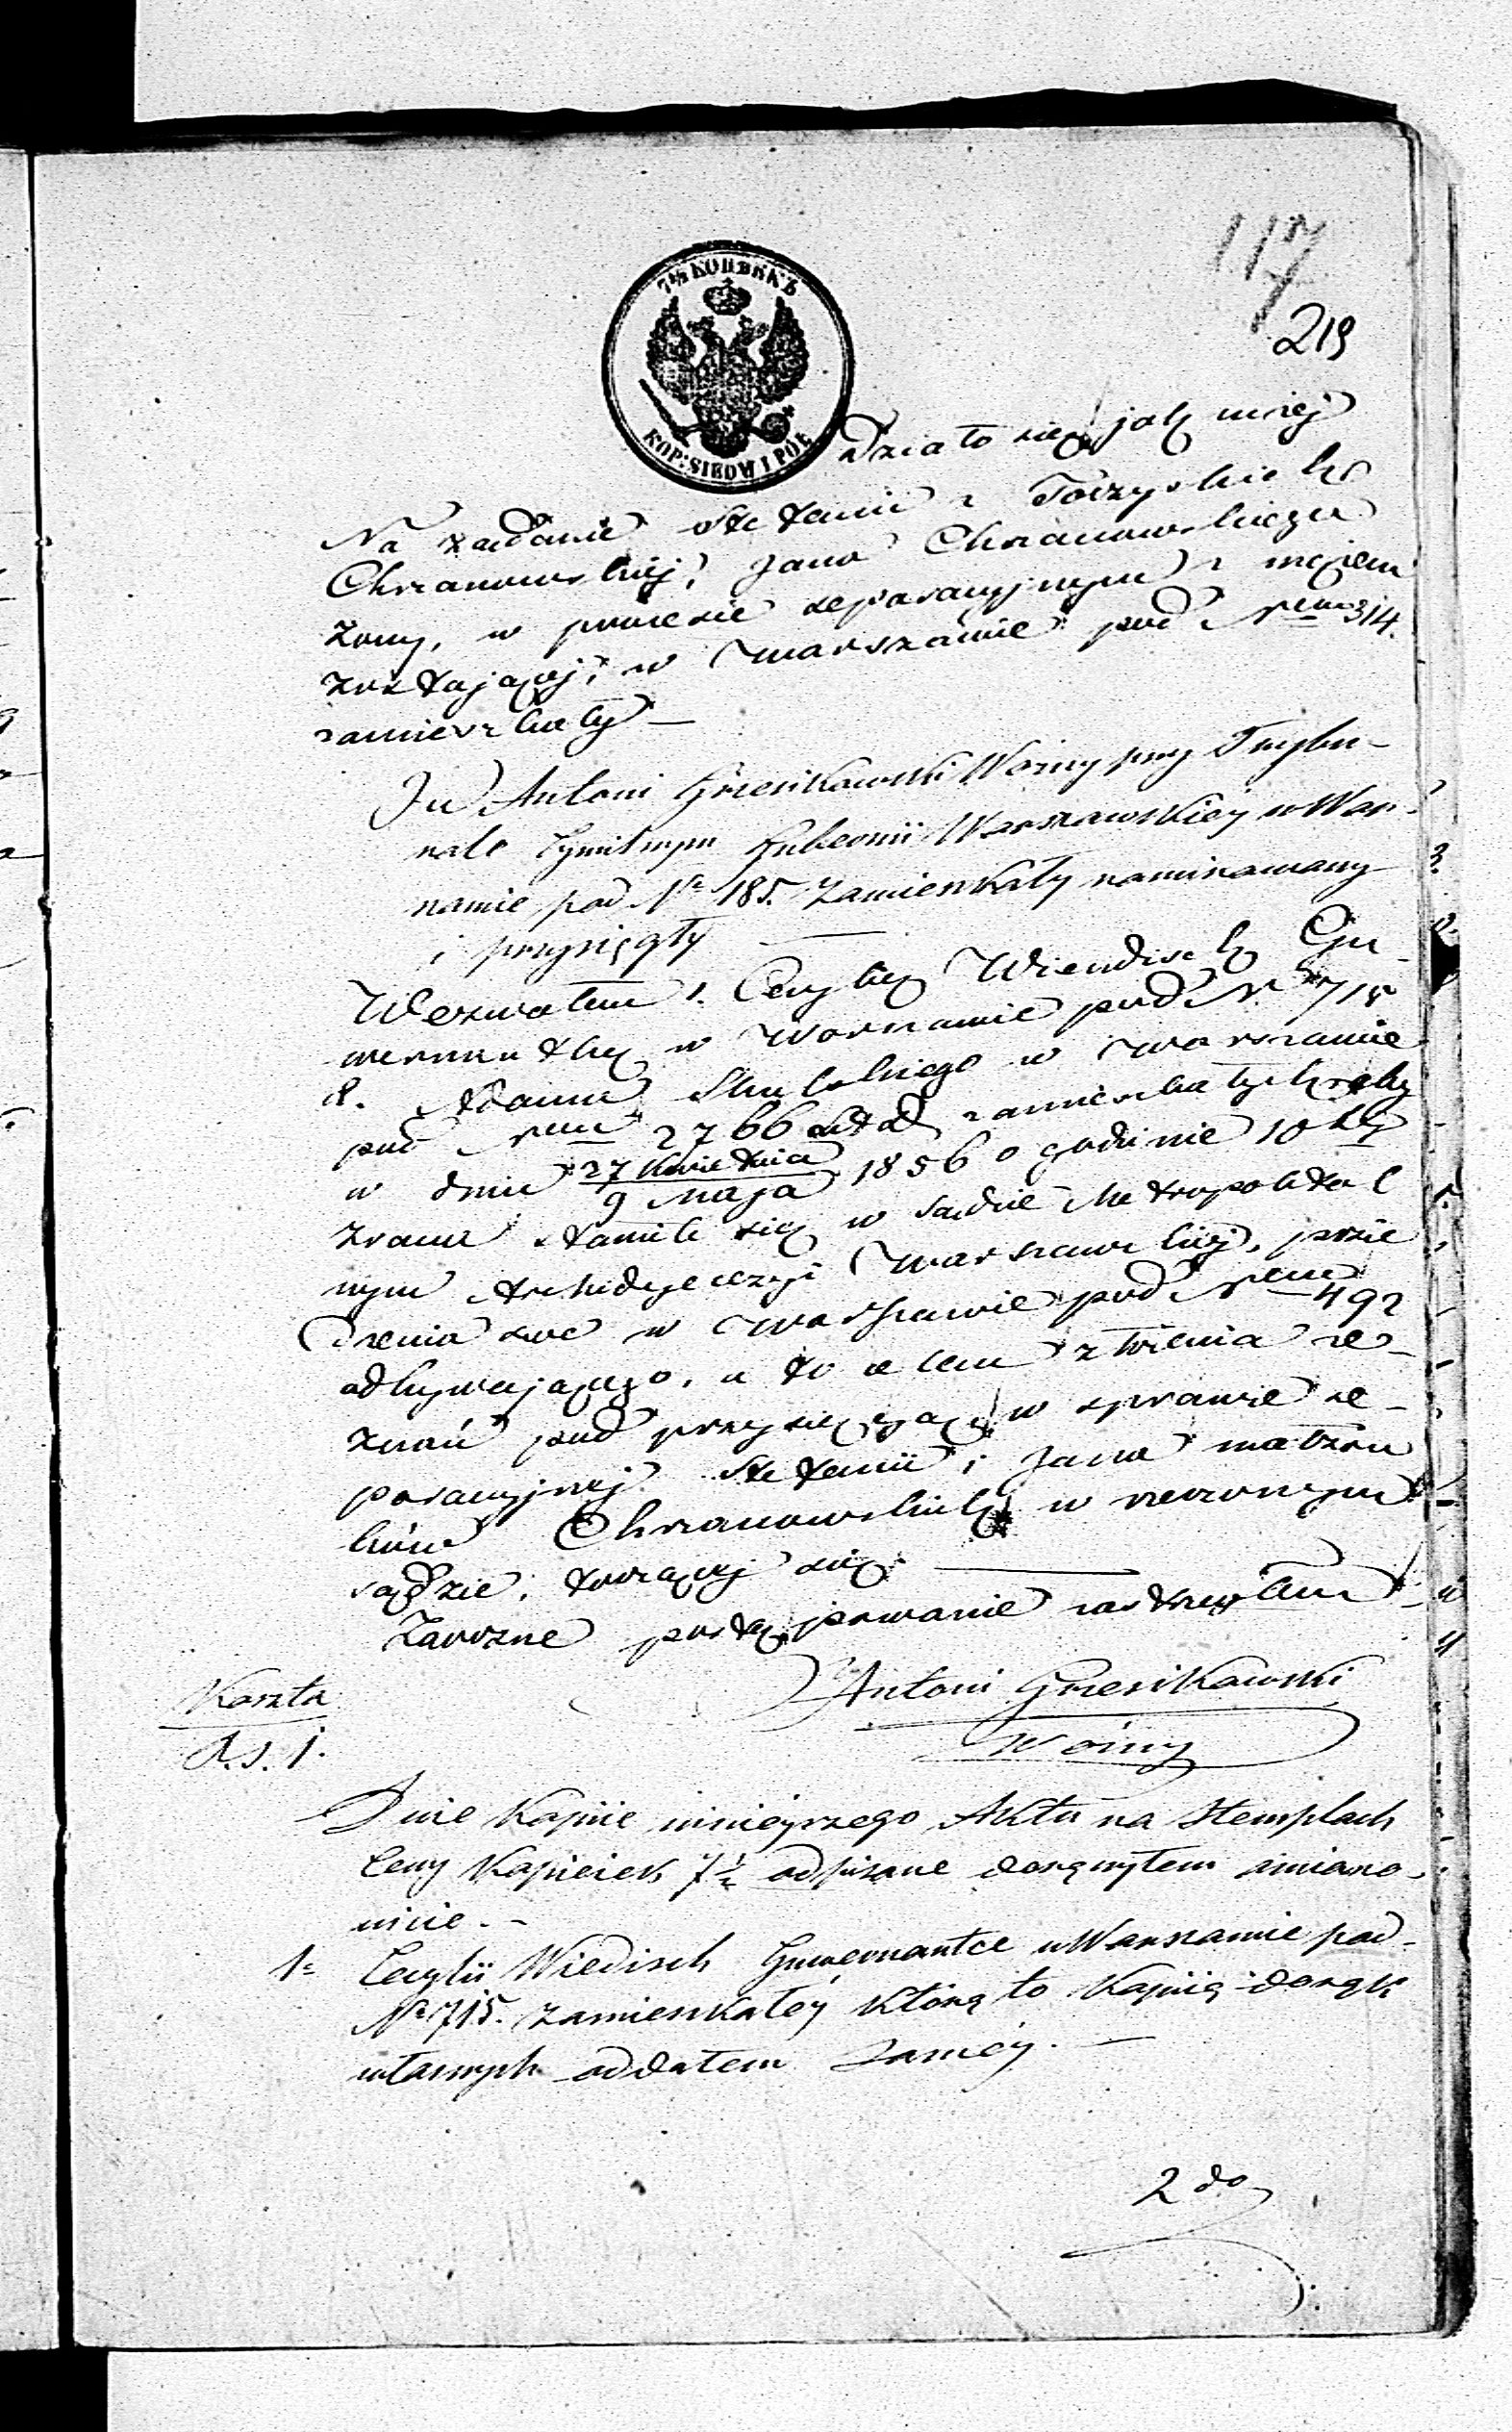 117
219
7½ КОПѢЕКЪ
KOP: SIEDM I PÓŁ
Działo się jak niżej
Na żądanie Stefanii z Toczyskich
Chrzanowskiej, Jana Chrzanowskiego
żony, w procesie separacyjnym z mężem
zostającej, w Warszawie pod Nrem 314.
zamieszkałej —
Ja Antoni Grzesikowski Woźny przy Trybu-
nale Cywilnym Gubernii Warszawskiey w War-
szawie pod Nr 185. zamieszkały nominowany
i przysięgły —
Wezwałem 1. Cecylię Wiendisch Gu
wernantkę w Warszawie pod N. 715
2. Adama w Warszawie
pod Nrem 2766 zamieszkałych ażeby
w dniu 27 Kwietnia / 9 Maja 1856 o godzinie 10tej
zrana stawili się w Sądzie Metropolital
nym Archidyecezyi Warszawskiej, posie
dzenia swe w Warszawie pod Nrem 492
odbywającego, a to celem złożenia ze-
znań pod przysięgą w sprawie se-
paracyjnej Stefanii i Jana małżon
ków Chrzanowskich w rzeczonym
sądzie, toczącej się. —
Zaoczne postępowanie zastrzegłem
Antoni Grzesikowski
Woźny
Koszta
R.s. 1.
Dwie Kopiie ninieyszego Aktu na Stemplach
Ceny Kopieiek 7½ odpisane doręczyłem a miano-
wicie. -
1= Cecylii Wiedisch Guwernantce w Warszawie pod
Nr 715. zamieszkałey którą to Kopiię do rąk
własnych oddałem Samey. —
2do